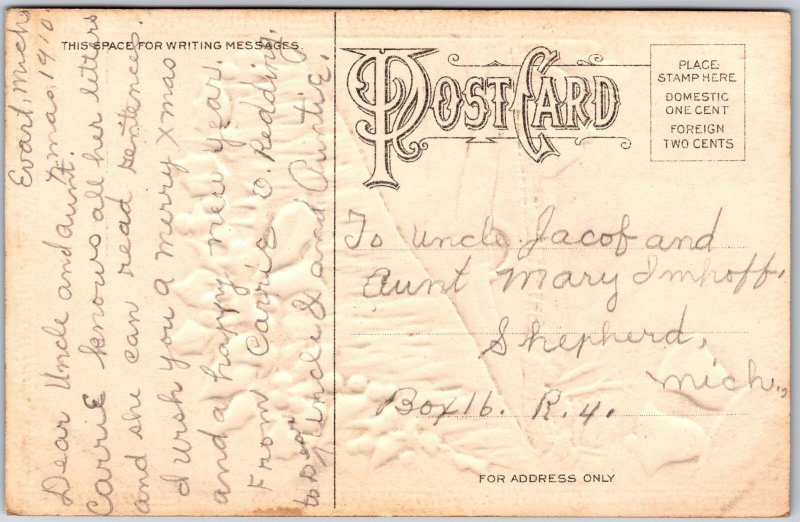 THIS SPACE FOR WRITING MESSAGES.
Evart, Mich
Xmas, 1910.
Dear Uncle and aunt.
Carrie knows all her letters
and she can read sentences.
I wish you a merry xmas
and a happy new year.
From Carrie O. Redding,
to Dear Uncle J and Auntie.
POST CARD
PLACE
STAMP HERE
DOMESTIC
ONE CENT
FOREIGN
TWO CENTS
To Uncle Jacof and
Aunt Mary Imhoff.
Shepherd,
Mich.,
Box 16. R. 4.
FOR ADDRESS ONLY